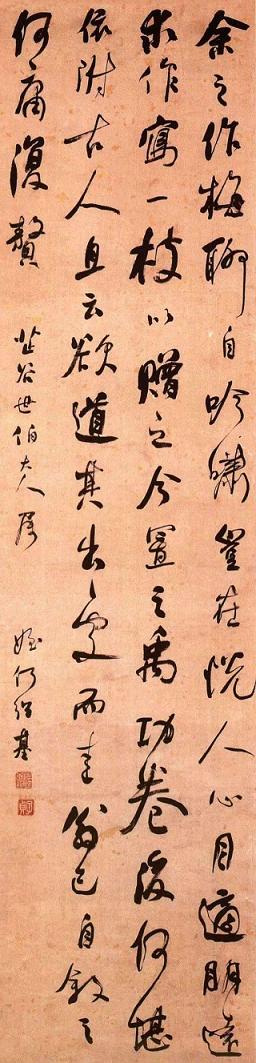 余之作梅聊自吟啸岂在悦人心目適朋遠
求作寫一枝以贈之今置之禹功卷後何堪
依附古人且云欲道其出處而圭翁已自敘之
何庸復贅
芷谷世伯大人屬 姪何紹基